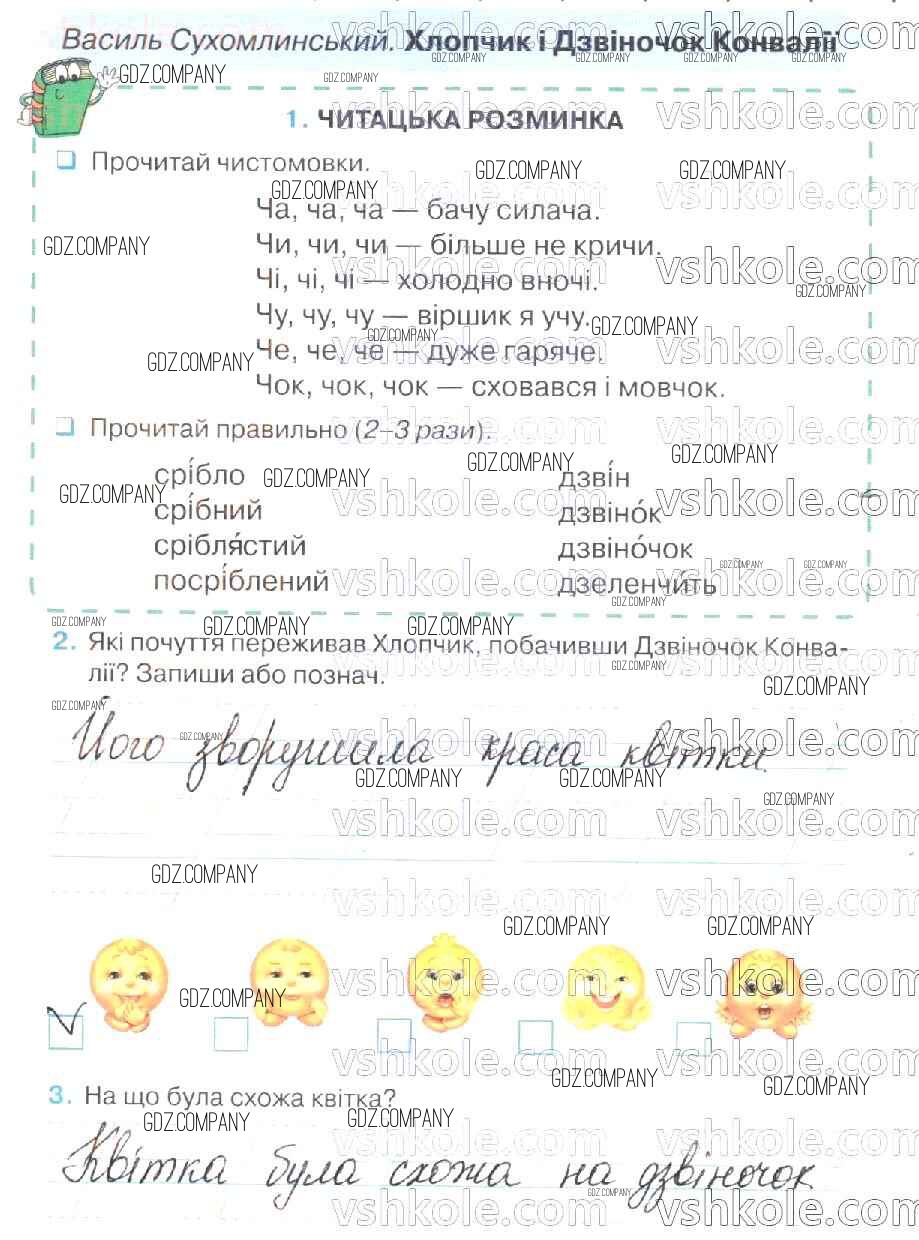 Василь Сухомлинський. Хлопчик і Дзвіночок Конвалії
1. ЧИТАЦЬКА РОЗМИНКА
Прочитай чистомовки.
Ча, ча, ча — бачу силача.
Чи, чи, чи — більше не кричи.
Чі, чі, чі — холодно вночі.
Чу, чу, чу — віршик я учу.
Че, че, че — дуже гаряче.
Чок, чок, чок — сховався і мовчок.
Прочитай правильно (2–3 рази).
срі́бло дзвін
срі́бний дзвіно́к
срібля́стий дзвіно́чок
посрі́блений дзеленчи́ть
2. Які почуття переживав Хлопчик, побачивши Дзвіночок Конва-
лії? Запиши або познач.
Його зворушила краса квітки.
3. На що була схожа квітка?
Квітка була схожа на дзвіночок
GDZ.COMPANY
vshkole.com